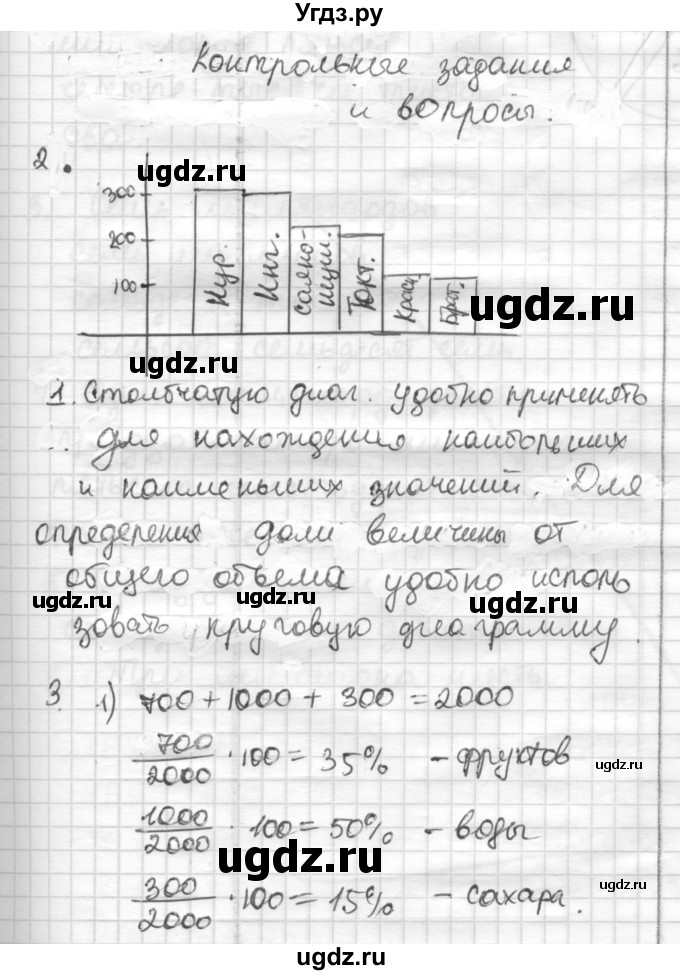 Угдз.ру
Контрольные задания
и вопросы.
2.
ugdz.ru
300
200
100
Нур.
Инг.
Саяно-
шуш.
Токт.
Красн.
Брат.
ugdz.ru
ugdz.ru
1. Столбчатую диаг. удобно применять
для нахождения наибольших
и наименьших значений. Для
определения доли величины от
общего объема удобно исполь
ugdz.ru ugdz.ru ugdz.ru
зовать круговую диаграмму.
3. 1) 700 + 1000 + 300 = 2000
700/2000 · 100 = 35% – фруктов
ugdz.ru
1000/2000 · 100 = 50% – воды
ugdz.ru
300/2000 · 100 = 15% – сахара.
ugdz.ru
ugdz.ru